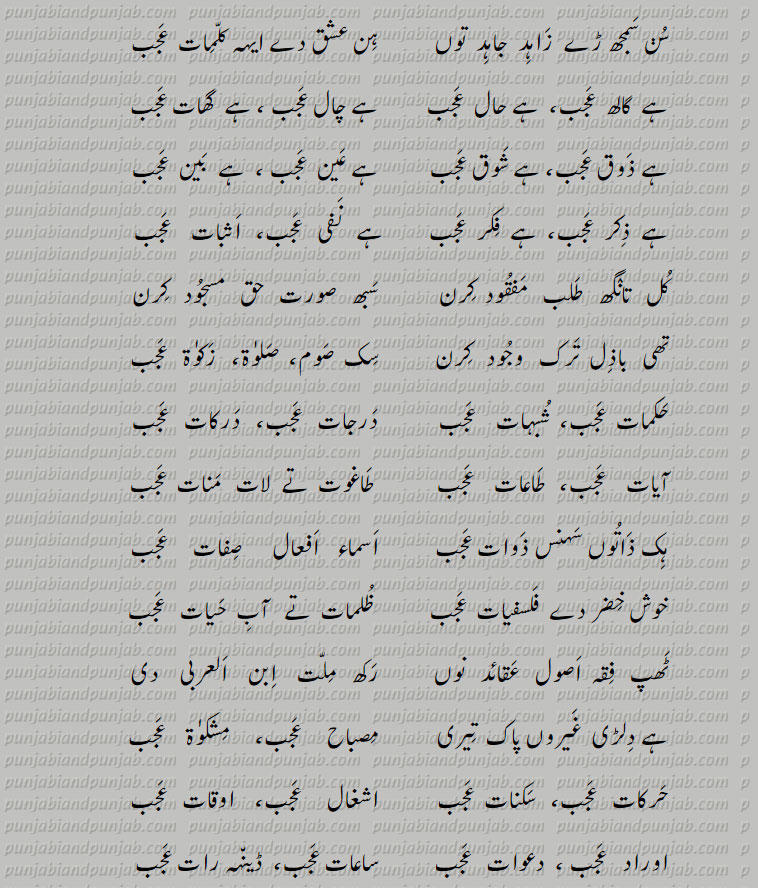 سُن سَمجھ ڑے زَاہِد جاہِد توں ہِن عشق دے ایہہ کلّمِات عَجَب
ہے گالھ عَجَب، ہے حال عَجَب ہے چال عَجَب ، ہے گھات عَجَب
ہے ذَوق عَجَب، ہے شَوق عَجَب ہے عَین عَجَب ، ہے بَین عَجَب
ہے ذِکر عَجَب، ہے فِکر عَجَب ہے نَفی عَجَب، اَثبات عَجَب
کُل تانگھ طَلب مَفقُود کِرن سَبھ صورت حق مسجُود کِرن
تھی باذِل تَرک وجُود کِرن سِک صَوم، صَلوٰۃ، زَکوٰۃ عَجَب
حَکمات عَجَب، شُبہات عَجَب دَرجات عَجَب، دَرکات عَجَب
آیات عَجَب، طَاعات عَجَب طَاغوت تے لات مَنات عَجَب
ہِک ذَاتُوں سَہنس ذَوات عَجَب اَسماء اَفعال صِفات عَجَب
خوش خِضر دے فَلسفیات عَجَب ظُلمات تے آبِ حَیات عَجَب
ٹَھپ فِقہ اَصول عَقائد نوں رَکھ مِلّت اِبن اَلعربی دی
ہے دِلڑی غَیروں پاک تِیری مِصباح عَجَب، مِشکوٰۃ عَجَب
حَرکات عَجَب، سَکنات عَجَب اشغال عَجَب، اوقات عَجَب
اوراد عَجَب ، دعوات عَجَب ساعات عَجَب، ڈینہہ رات عَجَب
punjabiandpunjab.com